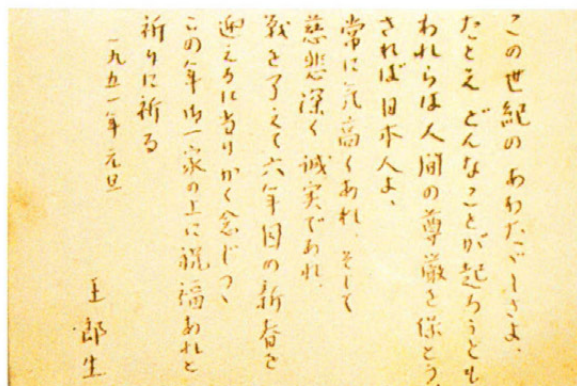 この世紀のあわたゞしさよ、
たとえどんなことが起ろうとも
われらは人間の尊厳を保とう、
されば日本人よ、
常に気高くあれ、そして
慈悲深く誠実であれ、
戦を了えて六年目の新春を
迎えるに当りかく念じつゝ
この年御一家の上に祝福あれと
祈りに祈る
一九五一年元旦
王郎生